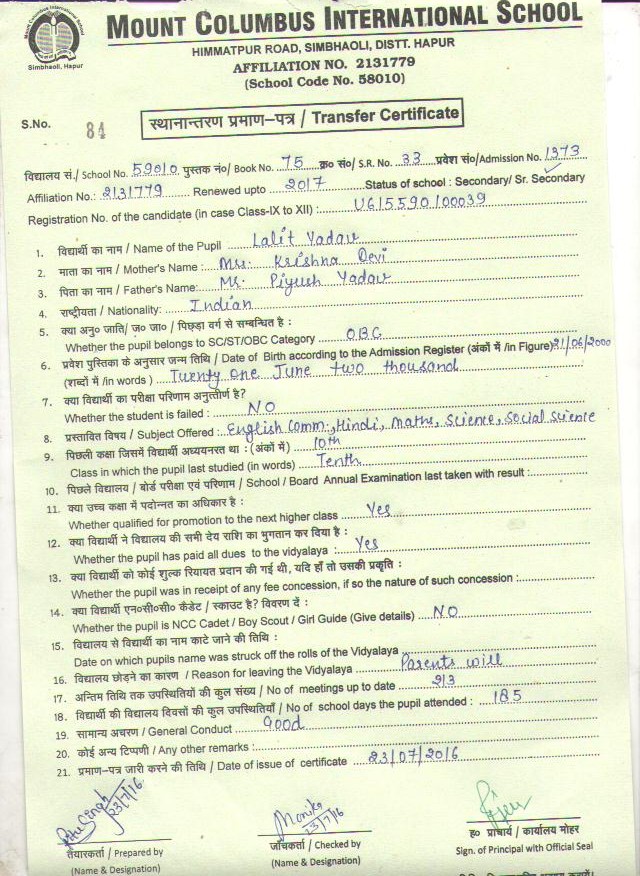 Mount Columbus International School
Simbhaoli, Hapur
MOUNT COLUMBUS INTERNATIONAL SCHOOL
HIMMATPUR ROAD, SIMBHAOLI, DISTT. HAPUR
AFFILIATION NO. 2131779
(School Code No. 58010)
S.No. 84
स्थानान्तरण प्रमाण–पत्र / Transfer Certificate
विद्यालय सं./ School No. 59010 पुस्तक नं०/ Book No. 75 क्र० सं०/ S.R. No. 33 प्रवेश सं०/Admission No. 1373
Affiliation No.: 2131779 Renewed upto 2017 Status of school : Secondary/ Sr. Secondary
Registration No. of the candidate (in case Class-IX to XII) : U615590100039
1. विद्यार्थी का नाम / Name of the Pupil Lalit Yadav
2. माता का नाम / Mother's Name : Mrs. Krishna Devi
3. पिता का नाम / Father's Name: Mr. Piyush Yadav
4. राष्ट्रीयता / Nationality: Indian
5. क्या अनु० जाति/ ज० जा० / पिछड़ा वर्ग से सम्बन्धित है :
Whether the pupil belongs to SC/ST/OBC Category OBC
6. प्रवेश पुस्तिका के अनुसार जन्म तिथि / Date of Birth according to the Admission Register (अंकों में /in Figure) 21/06/2000
(शब्दों में /in words ) Twenty One June two thousand
7. क्या विद्यार्थी का परीक्षा परिणाम अनुत्तीर्ण है?
Whether the student is failed : NO
8. प्रस्तावित विषय / Subject Offered : English Comm., Hindi, Maths, Science, Social science
9. पिछली कक्षा जिसमें विद्यार्थी अध्ययनरत था : (अंकों में ) 10th
Class in which the pupil last studied (in words) Tenth
10. पिछले विद्यालय / बोर्ड परीक्षा एवं परिणाम / School / Board Annual Examination last taken with result :
11. क्या उच्च कक्षा में पदोन्नत का अधिकार है :
Whether qualified for promotion to the next higher class Yes
12. क्या विद्यार्थी ने विद्यालय की सभी देय राशि का भुगतान कर दिया है :
Whether the pupil has paid all dues to the vidyalaya : Yes
13. क्या विद्यार्थी को कोई शुल्क रियायत प्रदान की गई थी, यदि हाँ तो उसकी प्रकृति :
Whether the pupil was in receipt of any fee concession, if so the nature of such concession :
14. क्या विद्यार्थी एन०सी०सी० कैडेट / स्काउट है? विवरण दें :
Whether the pupil is NCC Cadet / Boy Scout / Girl Guide (Give details) NO
15. विद्यालय से विद्यार्थी का नाम काटे जाने की तिथि :
Date on which pupils name was struck off the rolls of the Vidyalaya
16. विद्यालय छोड़ने का कारण / Reason for leaving the Vidyalaya Parents will
17. अन्तिम तिथि तक उपस्थितियों की कुल संख्या / No of meetings up to date 213
18. विद्यार्थी की विद्यालय दिवसों की कुल उपस्थितियाँ / No of school days the pupil attended : 185
19. सामान्य अचरण / General Conduct Good
20. कोई अन्य टिप्पणी / Any other remarks :
21. प्रमाण–पत्र जारी करने की तिथि / Date of issue of certificate 23/07/2016
23/7/16
Monika
23/7/16
तैयारकर्ता / Prepared by
(Name & Designation)
जाँचकर्ता / Checked by
(Name & Designation)
ह० प्राचार्य / कार्यालय मोहर
Sign. of Principal with Official Seal